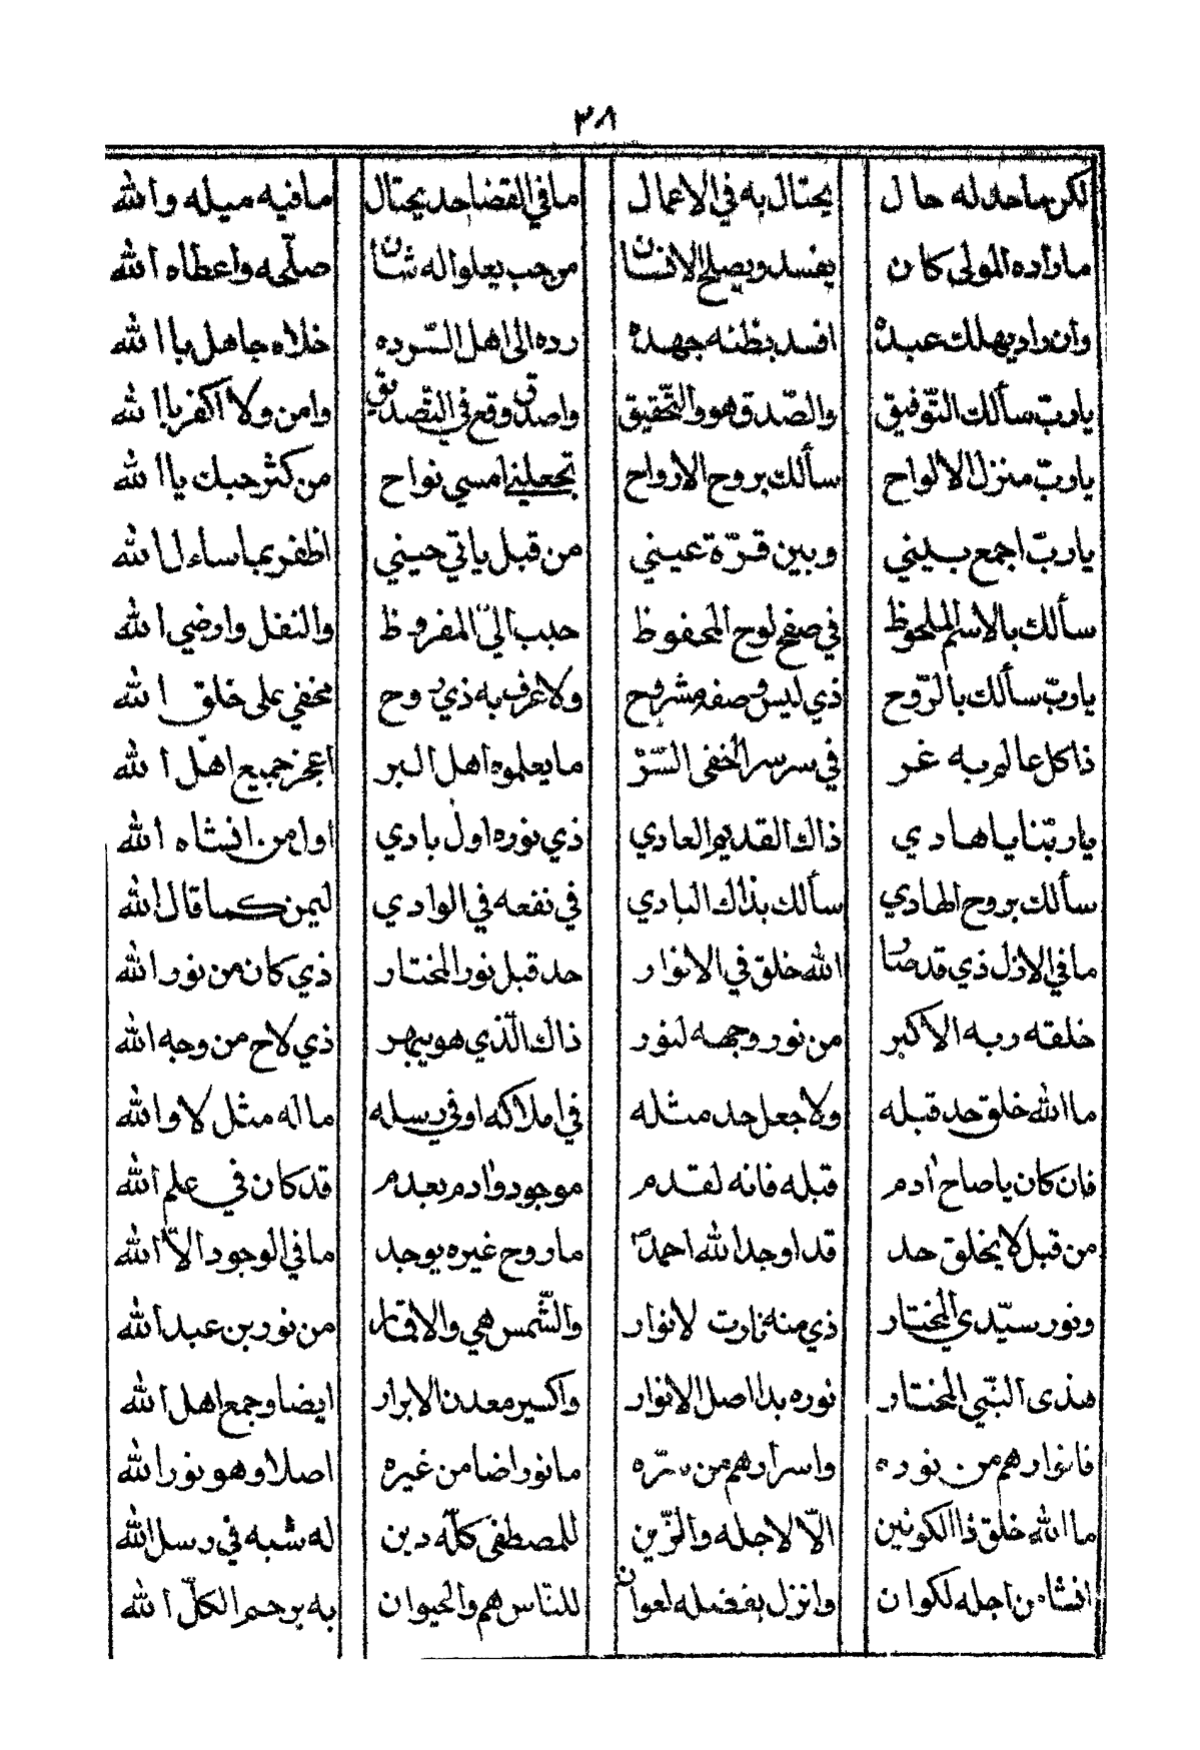 ٣٨
لكن ماحد له حال يحتال به في الاعمال ما في القضا حد يحتال ما فيه ميله والله
ما راده المولى كان يفسد ويصلح الانسان من حب يعلوا له شان صلّحه واعطاه الله
وان راد يهلك عبده افسد بظنه جهده رده الى اهل السّرده خلاه جاهل باالله
يا ربّ سألك التّوفيق والصّدق هو والتّحقيق واصدق وقع في التّصديق وامن ولا اكفر باالله
يا ربّ منزل الالواح سألك بروح الارواح تجعلني امسي نواح من كثر حبك ياالله
يا ربّ اجمع بيني وبين قرّة عيني من قبل ياتي حيني اظفر بما ساءل الله
سألك بالاسم الملحوظ في صفح لوح المحفوظ حبب الي المفروظ والنفل وارضي الله
يا ربّ سألك بالرّوح ذي ليس وصفه مشروح ولا عرف به ذي روح مخفي على خلق الله
ذا كل عالم به غر في سر سر الخفى السّرّ ما يعلموه اهل البر اعجز جميع اهل الله
يا ربّنا يا هادي ذاك القديم العادي ذي نوره اول بادي اول من انشاه الله
سألك بروح الهادي سألك بذاك البادي في نفعه في الوادي ليمن كما قال الله
ما في الازل ذي قد صار الله خلق في الانوار حد قبل نور المختار ذي كان من نور الله
خلقه ربه الاكبر من نور وجهه لنور ذاك الّذي هو يبهر ذي لاح من وجه الله
ما الله خلق حد قبله ولا جعل حد مثله في املاكه او في رسله ما له مثل لا والله
فان كان يا صاح ادم قبله فانه لقدم موجود وادم بعدم قد كان في علم الله
من قبل لا يخلق حد قد اوجد الله احمد ما روح غيره يوجد ما في الوجود الاّ الله
ونور سيّدي المختار ذي منه نارت لانوار والشّمس هي والاقمار من نور بن عبد الله
هذى النّبي المختار نوره بدا اصل الانوار واكسير معدن الابرار ايضا وجمع اهل الله
فانوارهم من نوره واسرارهم من سرّه ما نور اضا من غيره اصلا وهو نور الله
ما الله خلق ذا الكونين الاّ لاجله والزّين للمصطفى كلّه دين له شبه في رسل الله
انشاه من اجله لكوان وانزل بفضله لعوان للنّاس هم والحيوان به يرحم الكلّ الله